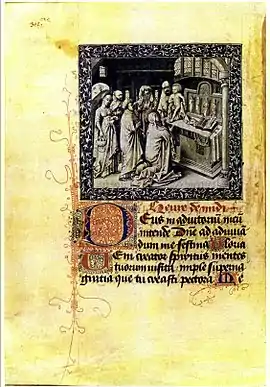 Heure de midi
Deus in adiutoriū meū
intende Dñe ad adiuuā
dum me festina Gloria
Veni creator spiritus mentes
tuorum visita imple superna
gratia que tu creasti pectora